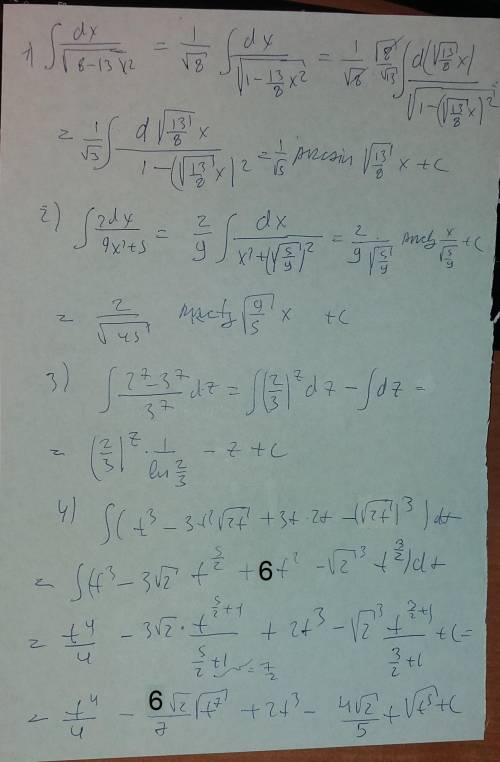 1) ∫ dx/√(8-13x²) = 1/√8 ∫ dx/√(1-13/8 x²) = 1/√8 · √8/√13 ∫ d(√(13/8) x)/√(1-(√(13/8) x)²) =
= 1/√3 ∫ d√(13/8) x/(1-(√(13/8) x)²) = 1/√3 arcsin √(13/8) x + C
2) ∫ 2dx/(9x²+5) = 2/9 ∫ dx/(x²+(√(5/9))²) = 2/(9·√(5/9)) arctg x/√(5/9) + C
= 2/√45 arctg √(9/5) x + C
3) ∫ (2^z-3^z)/3^z dz = ∫(2/3)^z dz - ∫dz =
= (2/3)^z · 1/(ln 2/3) - z + C
4) ∫(t³ - 3t²√(2t) + 3t·2t - (√(2t))³) dt
= ∫(t³ - 3√2 t^(5/2) + 6t² - √2³ t^(3/2)) dt
= t⁴/4 - 3√2 · t^(5/2+1)/(5/2+1) + 2t³ - √2³ t^(3/2+1)/(3/2+1) + C =
= 7/2
= t⁴/4 - 6√2/7 √(t⁷) + 2t³ - 4√2/5 + √(t⁵) + C